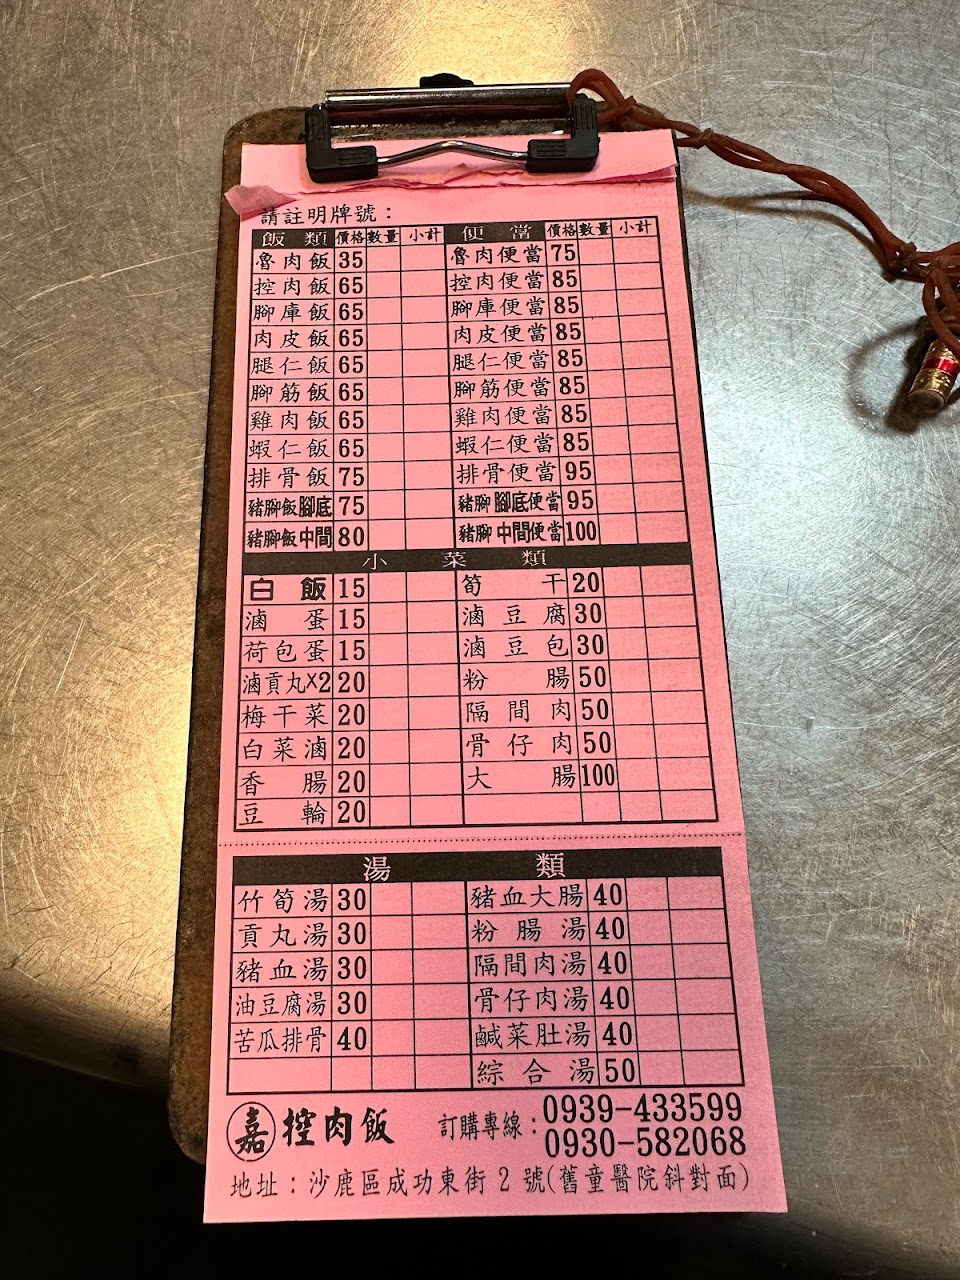 請註明牌號：
飯類 價格 數量 小計 便當 價格 數量 小計
魯肉飯 35 魯肉便當 75
控肉飯 65 控肉便當 85
腳庫飯 65 腳庫便當 85
肉皮飯 65 肉皮便當 85
腿仁飯 65 腿仁便當 85
腳筋飯 65 腳筋便當 85
雞肉飯 65 雞肉便當 85
蝦仁飯 65 蝦仁便當 85
排骨飯 75 排骨便當 95
豬腳飯腳底 75 豬腳腳底便當 95
豬腳飯中間 80 豬腳中間便當 100
小菜類
白飯 15 筍干 20
滷蛋 15 滷豆腐 30
荷包蛋 15 滷豆包 30
滷貢丸X2 20 粉腸 50
梅干菜 20 隔間肉 50
白菜滷 20 骨仔肉 50
香腸 20 大腸 100
豆輪 20
湯類
竹筍湯 30 豬血大腸 40
貢丸湯 30 粉腸湯 40
豬血湯 30 隔間肉湯 40
油豆腐湯 30 骨仔肉湯 40
苦瓜排骨 40 鹹菜肚湯 40
綜合湯 50
嘉 控肉飯 訂購專線：0939-433599
0930-582068
地址：沙鹿區成功東街 2 號(舊童醫院斜對面)